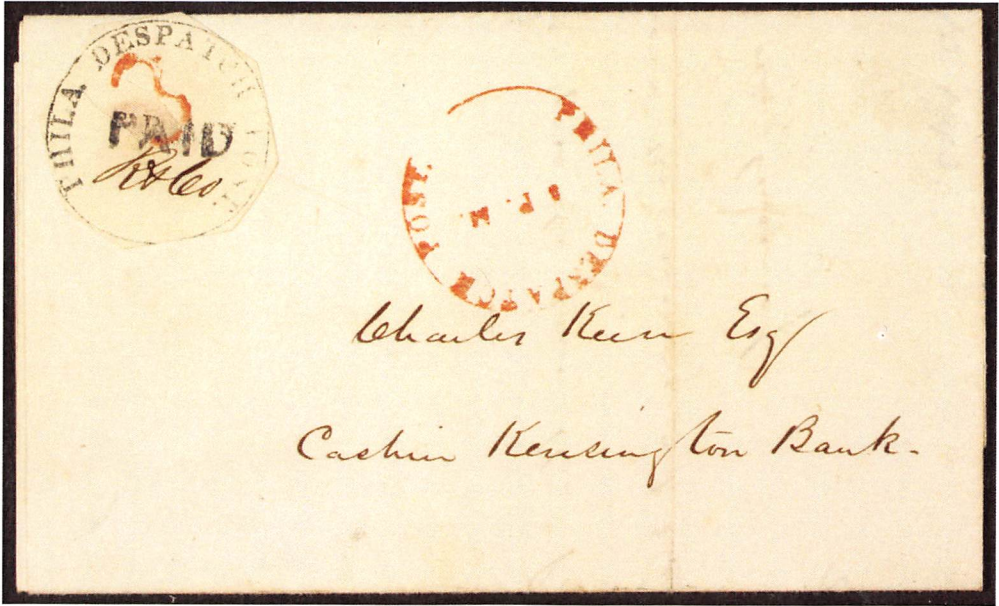 PHILA DESPATCH POST
3
PAID
R&Co
PHILA DESPATCH POST.
P.M.
Charles Keen Esq
Cashier Kensington Bank.